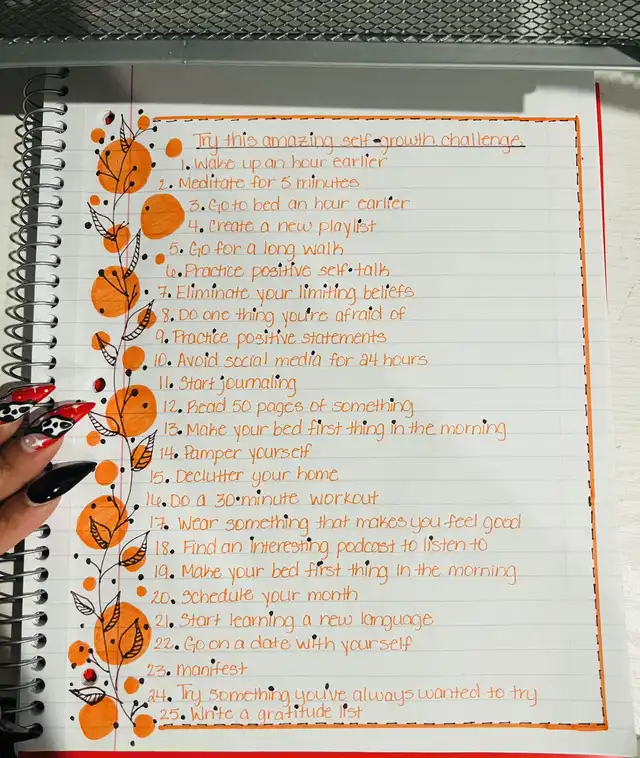 Try this amazing self-growth challenge
1. Wake up an hour earlier
2. Meditate for 5 minutes
3. Go to bed an hour earlier
4. Create a new playlist
5. Go for a long walk
6. Practice positive self-talk
7. Eliminate your limiting beliefs
8. Do one thing you're afraid of
9. Practice positive statements
10. Avoid social media for 24 hours
11. Start journaling
12. Read 50 pages of something
13. Make your bed first thing in the morning
14. Pamper yourself
15. Declutter your home
16. Do a 30-minute workout
17. Wear something that makes you feel good
18. Find an interesting podcast to listen to
19. Make your bed first thing in the morning
20. Schedule your month
21. Start learning a new language
22. Go on a date with yourself
23. manifest
24. Try something you've always wanted to try
25. Write a gratitude list